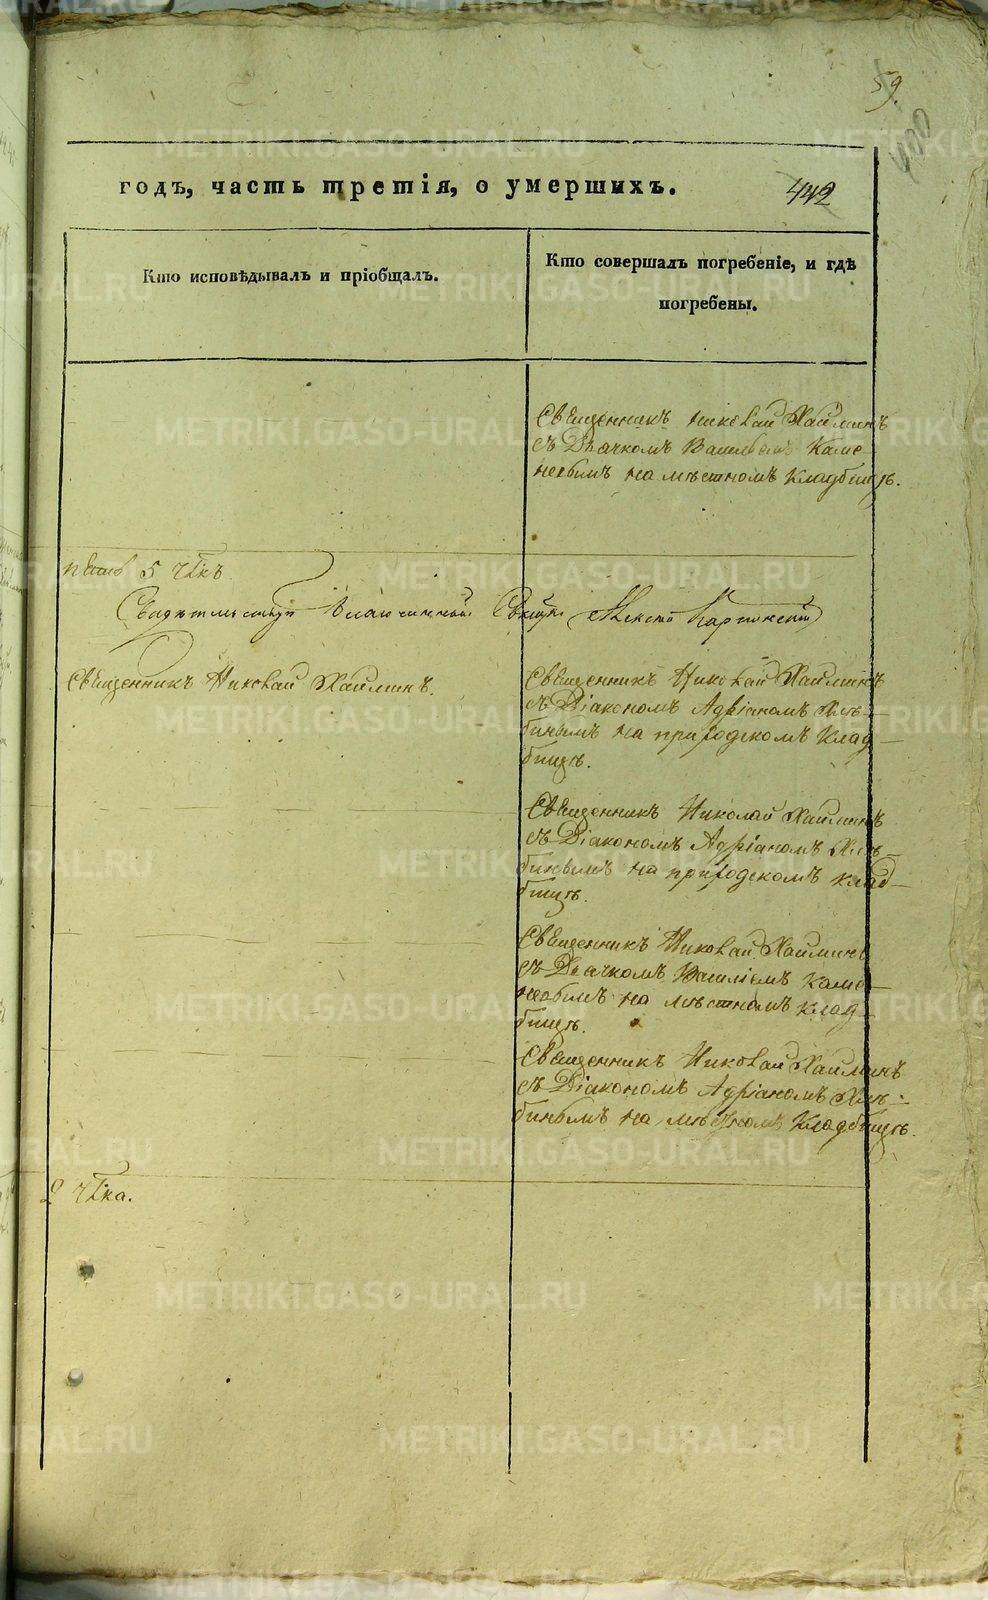 59.
442
годъ, часть третія, о умершихъ.
Кто исповѣдывалъ и пріобщалъ.
Кто совершалъ погребеніе, и гдѣ
погребены.
Священникъ Николай Хайминъ
съ Дьячкомъ Василіемъ Каме
невымъ на мѣстномъ кладбищѣ.
5 чкъ.
Священникъ Николай Хайминъ.
Священникъ Николай Хайминъ
съ Діакономъ Адріаномъ Хлѣ-
бинымъ на приходскомъ Клад-
бищѣ.
Священникъ Николай Хайминъ
съ Діакономъ Адріаномъ Хлѣ-
бинымъ на приходскомъ клад-
бищѣ.
Священникъ Николай Хайминъ
съ Дьячкомъ Василіемъ Каме-
невымъ на мѣстномъ клад-
бищѣ.
Священникъ Николай Хайминъ
съ Діакономъ Адріаномъ Хлѣ-
бинымъ на мѣстномъ Кладбищѣ.
2 чка.
METRIKI.GASO-URAL.RU